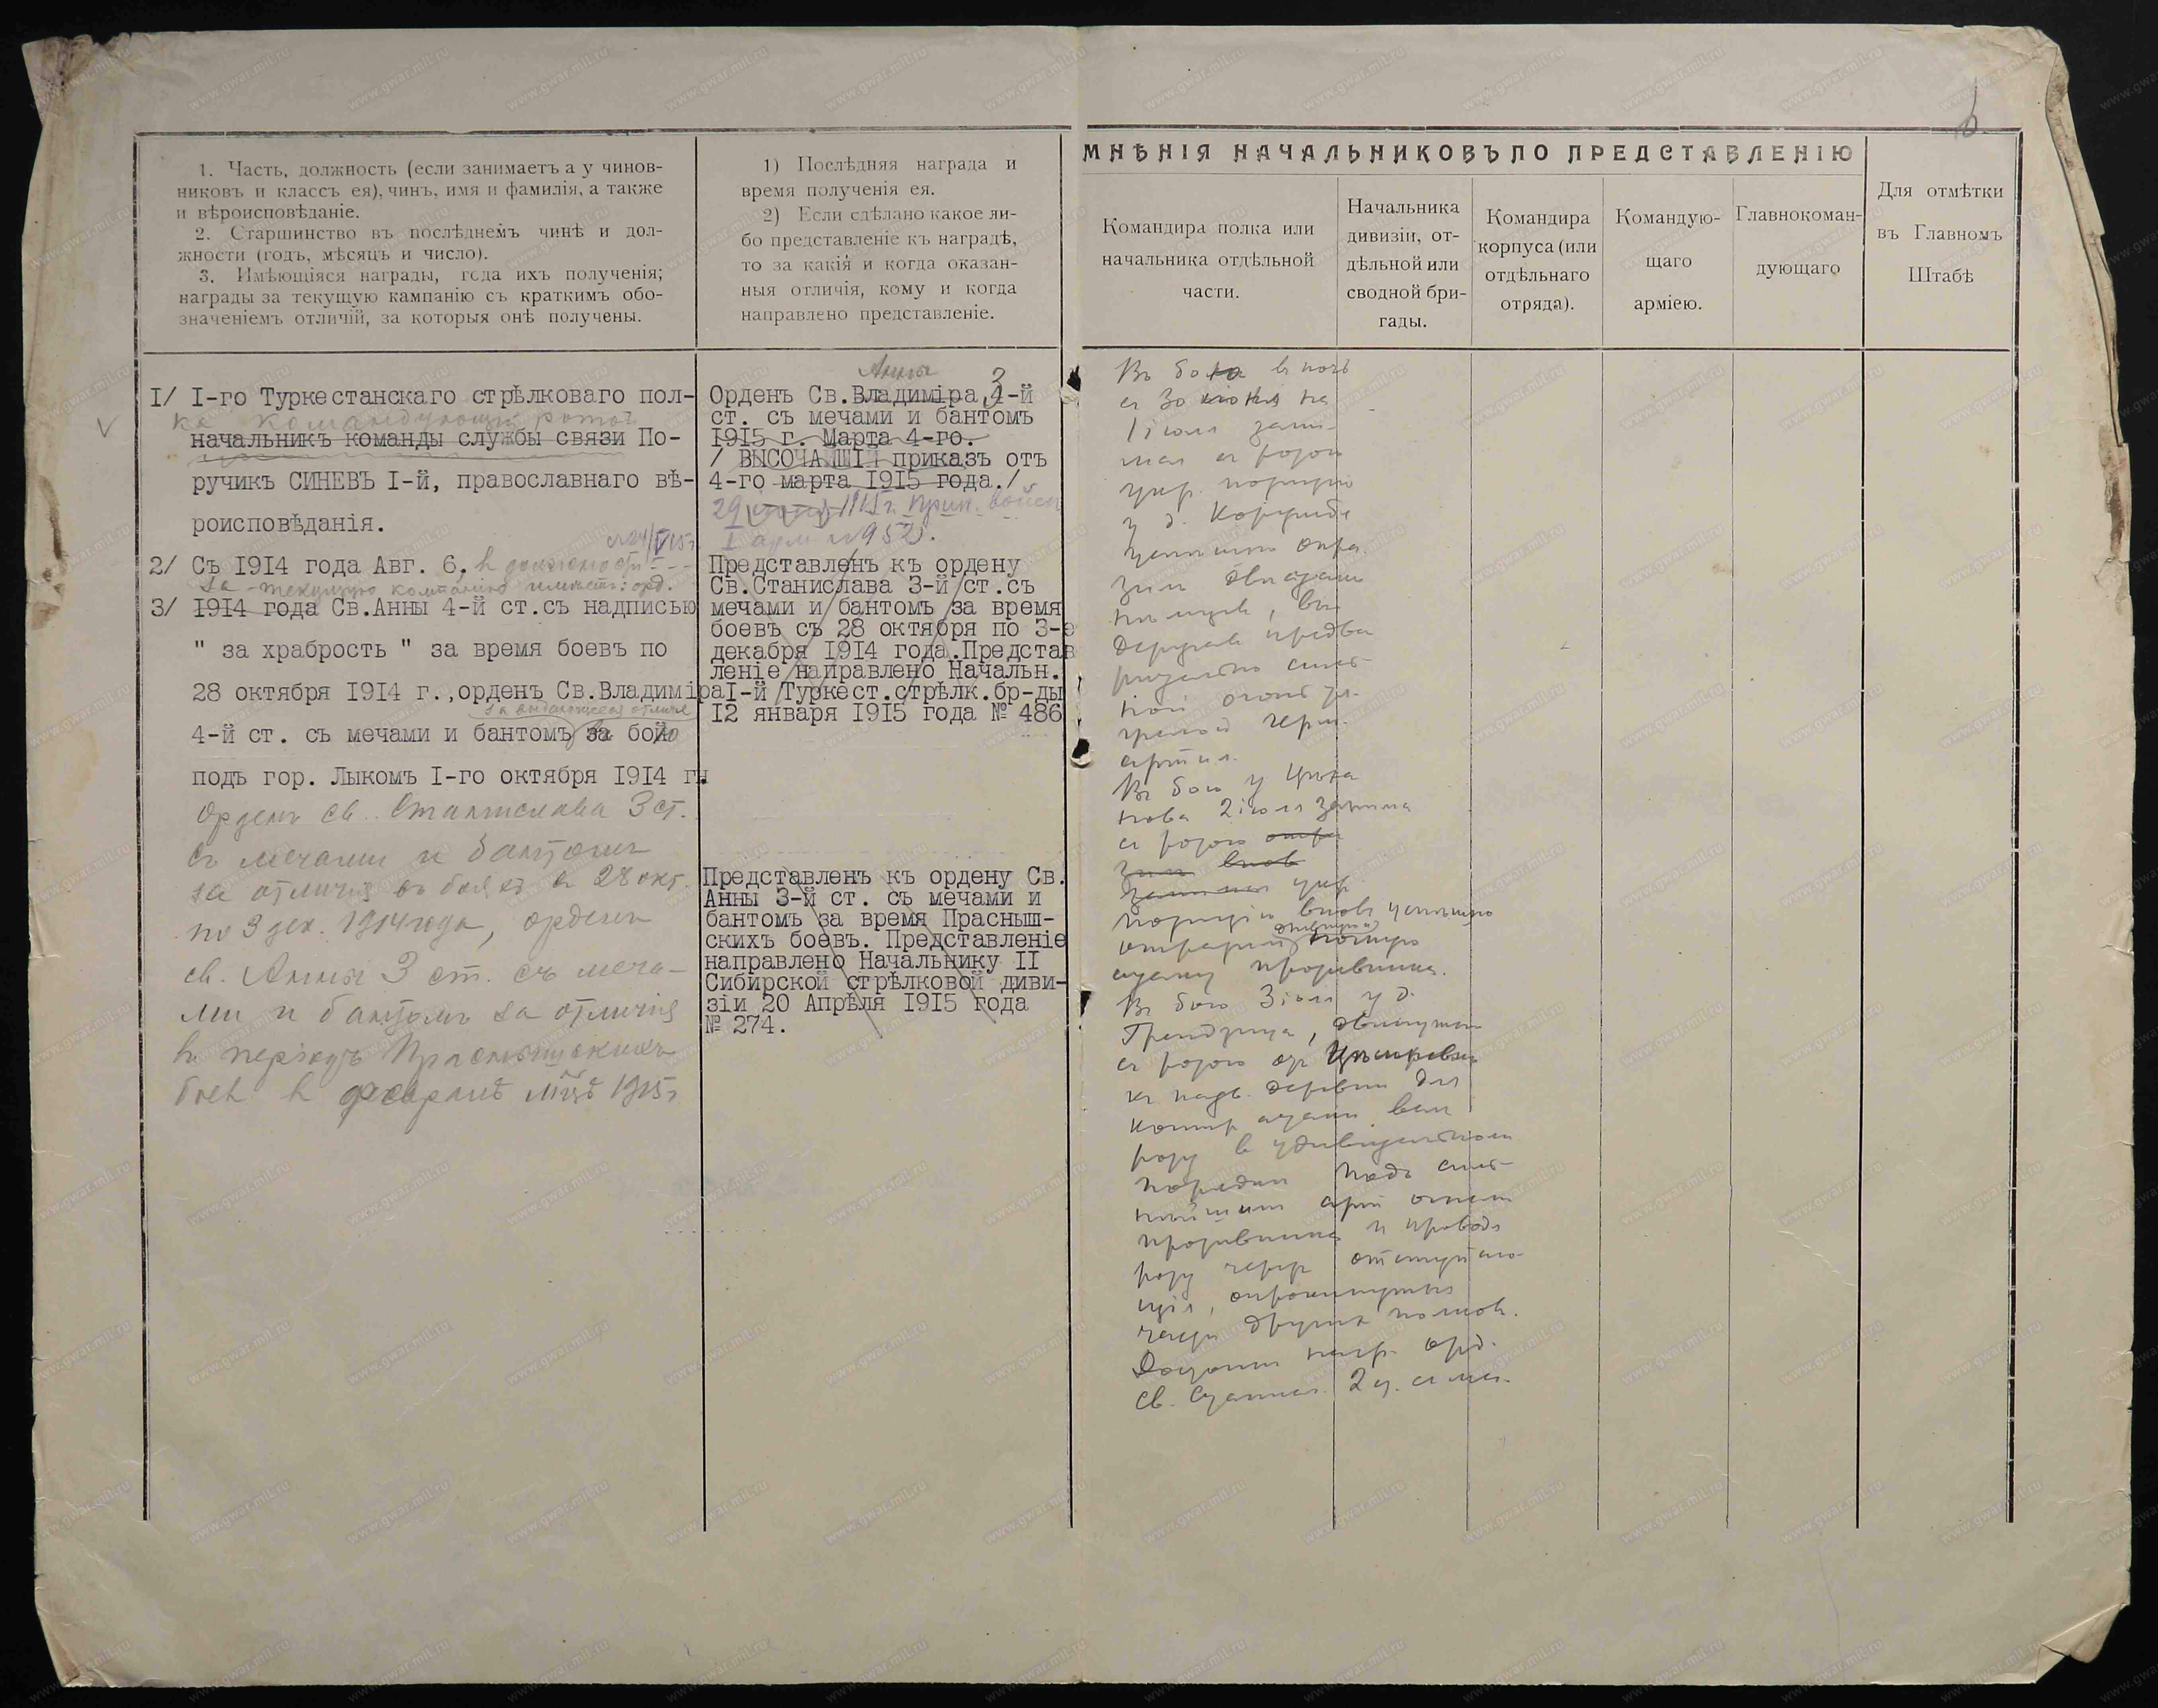 МНѢНІЯ НАЧАЛЬНИКОВЪ ПО ПРЕДСТАВЛЕНІЮ
1. Часть, должность (если занимаетъ а у чинов-
никовъ и классъ ея), чинъ, имя и фамилія, а также
и вѣроисповѣданіе.
2. Старшинство въ послѣднемъ чинѣ и дол-
жности (годъ, мѣсяцъ и число).
3. Имѣющіяся награды, года ихъ полученія;
награды за текущую кампанію съ краткимъ обо-
значеніемъ отличій, за которыя онѣ получены.
1) Послѣдняя награда и
время полученія ея.
2) Если сдѣлано какое ли-
бо представленіе къ наградѣ,
то за какія и когда оказан-
ныя отличія, кому и когда
направлено представленіе.
Командира полка или
начальника отдѣльной
части.
Начальника
дивизіи, от-
дѣльной или
сводной бри-
гады.
Командира
корпуса (или
отдѣльнаго
отряда).
Командую-
щаго
арміею.
Главнокоман-
дующаго
Для отмѣтки
въ Главномъ
Штабѣ
I/ I-го Туркестанскаго стрѣлковаго пол-
ка командующій ротой
начальникъ команды службы связи По-
ручикъ СИНЕВЪ I-й, православнаго вѣ-
роисповѣданія.
2/ Съ 1914 года Авг. 6. в должности
За текущую компанію имѣетъ: орд.
3/ 1914 года Св.Анны 4-й ст.съ надписью
" за храбрость " за время боевъ по
28 октября 1914 г.,орденъ Св.Владиміра
за выдающееся отличіе
4-й ст. съ мечами и бантомъ за бой
подъ гор. Лыкомъ I-го октября 1914 г.
Орденъ св. Станислава 3 ст.
съ мечами и бантомъ
за отличія въ бояхъ с 28 окт.
по 3 дек. 1914 года, орденъ
св. Анны 3 ст. съ меча-
ми и бантомъ за отличія
в періодъ Праснышскихъ
боев в февралѣ м-цѣ 1915 г
Анны 3
Орденъ Св.Владиміра 4-й
ст. съ мечами и бантомъ
1915 г. Марта 4-го.
/ ВЫСОЧАЙШІЙ приказъ отъ
4-го марта 1915 года./
29 1915 г. Прик. войск
I арм №952.
Представленъ къ ордену
Св.Станислава 3-й ст.съ
мечами и бантомъ за время
боевъ съ 28 октября по 3-е
декабря 1914 года.Представ
леніе направлено Начальн.
I-й Туркест.стрѣлк.бр-ды
12 января 1915 года № 486
Представленъ къ ордену Св.
Анны 3-й ст. съ мечами и
бантомъ за время Прасныш-
скихъ боевъ. Представленіе
направлено Начальнику II
Сибирской стрѣлковой диви-
зіи 20 Апрѣля 1915 года
№ 274.
в ночь
с 30 іюня на
1 іюля зани-
мая с ротой
укр. позицію
у д.
успѣшно отра-
зил
нѣмцев, вы
держав предва
рительно силь
ной
германской
артил.
Въ бою у
2 іюля занимая
с ротою
укр.
позицію вновь успѣшно
отразил
атаку противника.
Въ бою 3 іюля у д.
с ротою от
к назв. деревни для
контр атаки вел
роту в удивительном
порядкѣ под силь
нѣйшим арт огнем
противника и проводя
роту через отступаю-
щія, опрокинутыя
части других полков.
Достоин нагр. орд.
Св. Станисл. 2 ст. с меч.